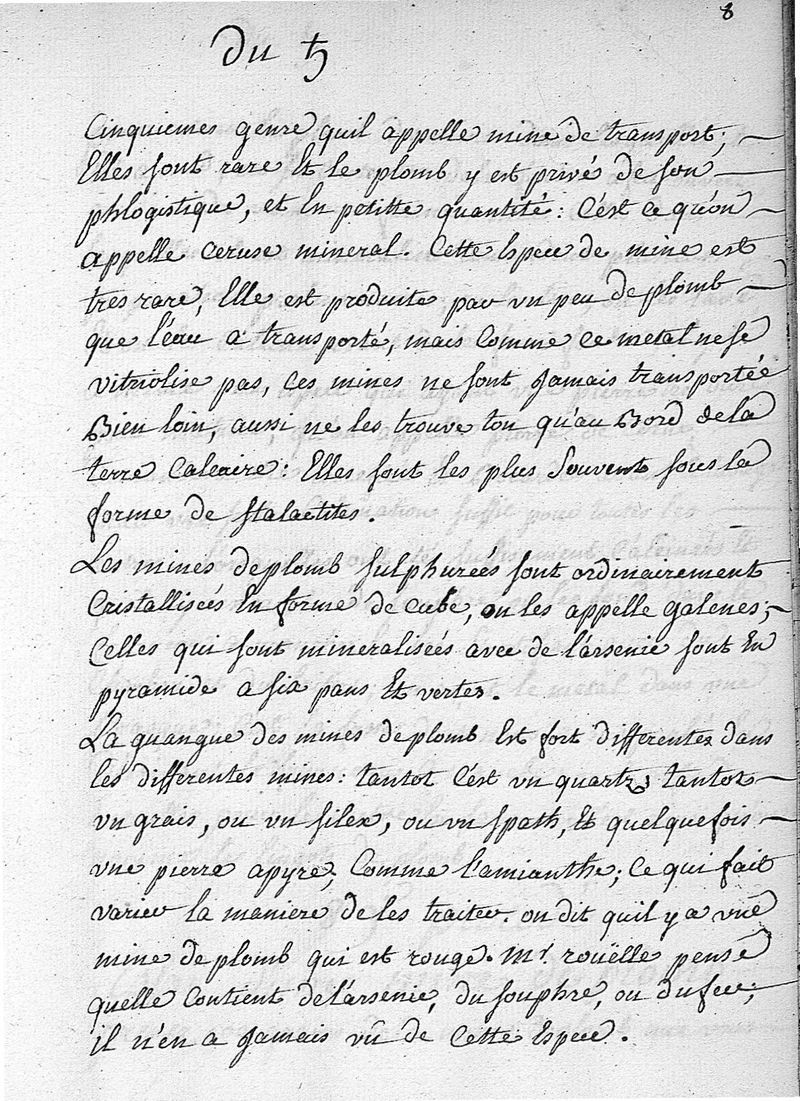 8
du ♄
Cinquiemes genre quil appelle mine de transport;
Elles sont rare Et le plomb y est privé de son
phlogistique, et En petitte quantité: C'est ce qu'on
appelle Ceruse mineral. Cette Espece de mine est
tres rare, Elle est produite par un peu de plomb
que l'eau a transporté, mais Comme ce metal ne se
vitriolise pas, Ces mines ne sont Jamais transportée
Bien loin, aussi ne les trouve ton qu'au Bord de la
terre Calcaire: Elles sont les plus Souvent sous la
forme de stalactites.
Les mines de plomb sulphurées sont ordinairement
Cristallisées En forme de cube, on les appelle galenes;
Celles qui sont mineralisées avec de l'arsenic sont En
pyramide a six pans Et vertes.
La guangue des mines de plomb Est fort differentes dans
les differentes mines: tantot C'est un quartz, tantot
un grais, ou un silex, ou un spath, Et quelquefois
une pierre apyre, Comme l'amianthe; Ce qui fait
varier la maniere de les traiter. on dit quil y a une
mine de plomb qui est rouge. Mr. rouëlle pense
quelle Contient de l'arsenic, du souphre, ou du fer;
il n'en a Jamais vû de Cette Espece.